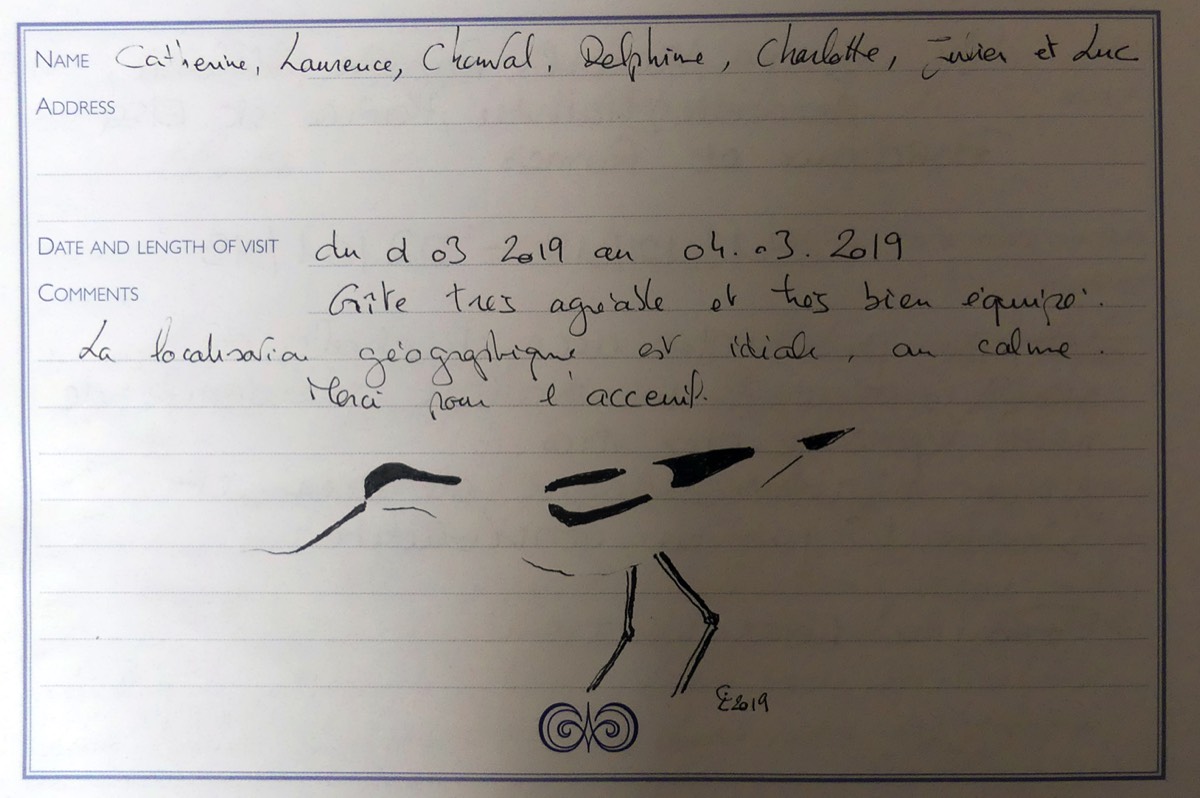 NAME Catherine, Laurence, Chantal, Delphine, Charlotte, et Luc
ADDRESS
DATE AND LENGTH OF VISIT du d 03 2019 au 04.03.2019
COMMENTS Gîte très agréable et très bien équipé.
La localisation géographique est idéale, au calme.
Merci pour l'accueil.
2019